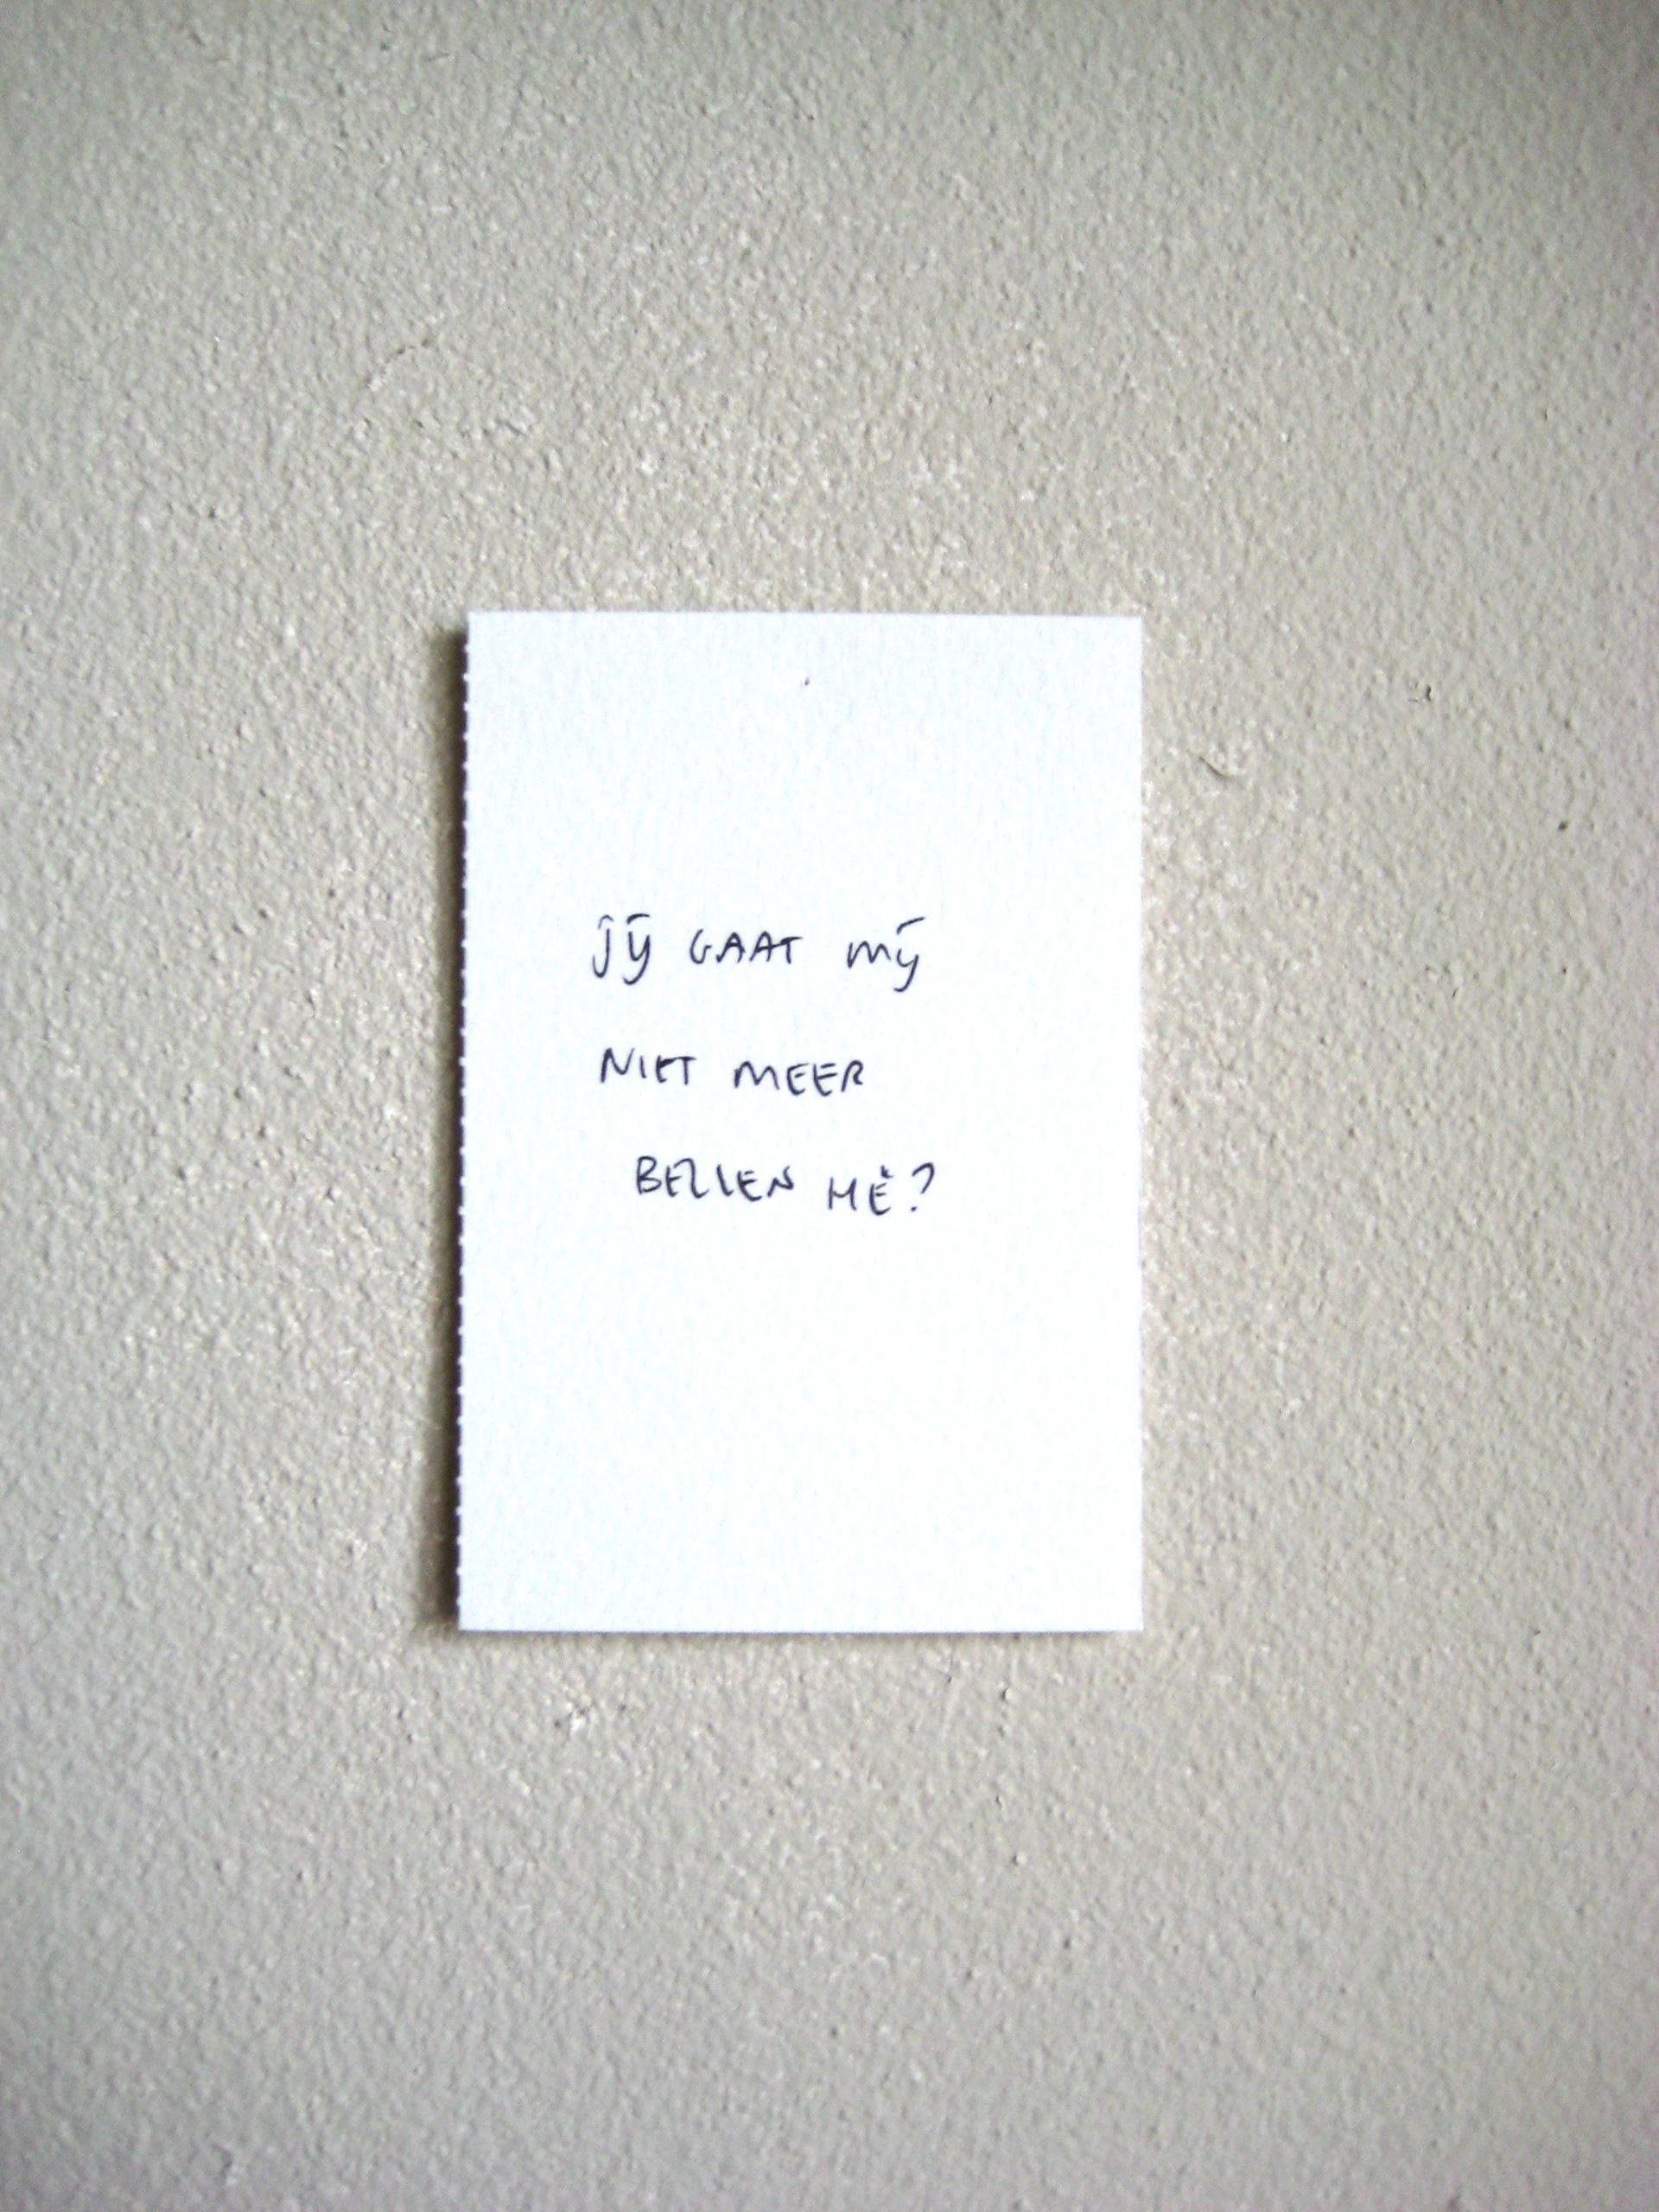 JIJ GAAT MIJ
NIET MEER
BELLEN HÈ?